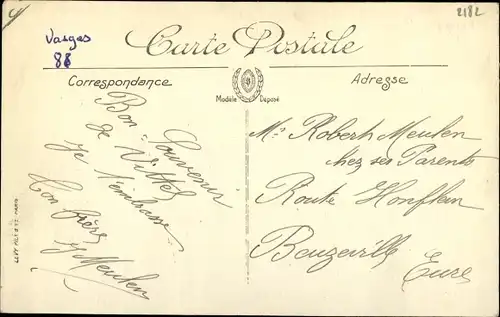 2182
Vosges
88
Carte Postale
Correspondance
Adresse
Modèle Déposé
Bon Souvenir
de Vittel
Je t'embrasse
Ton frère
Meulen
Mr Robert Meulen
chez ses Parents
Route Honfleur
Beuzeville
Eure